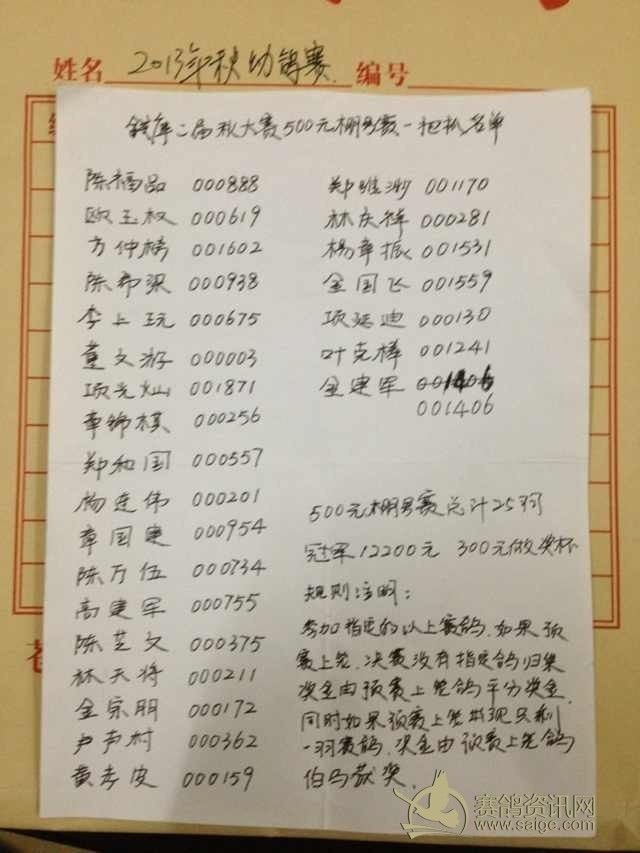 姓名 2013年秋幼鸽赛 编号
二届秋大赛500元棚号赛一把抓名单
陈福品 000888
欧玉权 000619
方仲榜 001602
陈希梁 000938
李上玩 000675
董文游 000003
项光灿 001871
章锦棋 000256
郑和国 000557
杨连伟 000201
章国建 000954
陈万伍 000734
高建军 000755
陈芝文 000375
林天将 000211
金宗朋 000172
尹声村 000362
黄孝皮 000159
郑维渺 001170
林庆祥 000281
杨章振 001531
金国飞 001559
项延迪 000130
叶克棒 001241
金建军 001406
001406
500元棚号赛总计25羽
冠军12200元 300元做奖杯
规则注明:
参加指定的以上赛鸽,如果预
赛上笼,决赛没有指定鸽归巢
奖金由预赛上笼鸽平分奖金,
同时如果预赛上笼出现只剩
一羽赛鸽,奖金由预赛上笼鸽
伯马获奖.
赛鸽资讯网
www.saigc.com